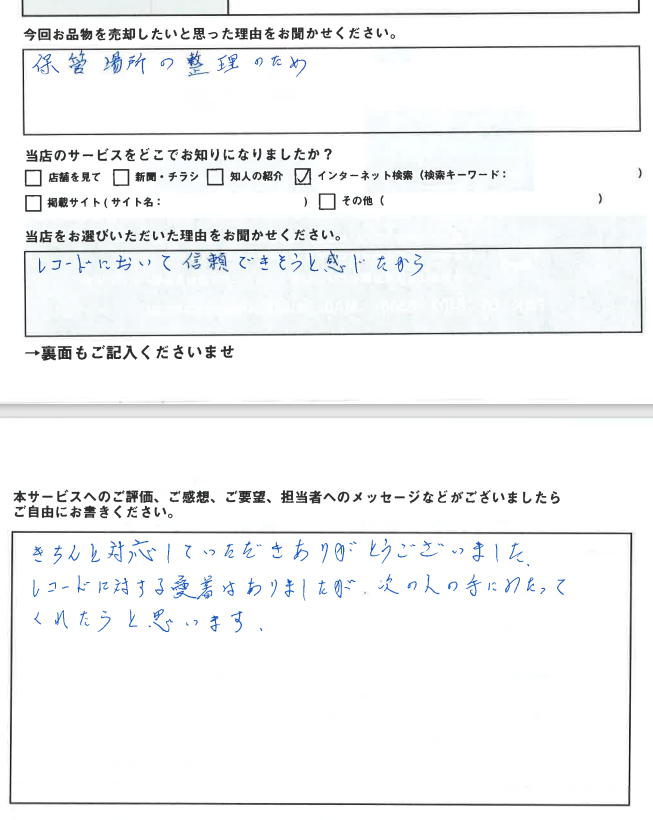 今回お品物を売却したいと思った理由をお聞かせください。
保管場所の整理のため
当店のサービスをどこでお知りになりましたか?
□ 店舗を見て □ 新聞・チラシ □ 知人の紹介 ☑ インターネット検索(検索キーワード: )
□ 掲載サイト(サイト名: ) □ その他( )
当店をお選びいただいた理由をお聞かせください。
レコードにおいて信頼できそうと感じたから
→裏面もご記入くださいませ
本サービスへのご評価、ご感想、ご要望、担当者へのメッセージなどがございましたら
ご自由にお書きください。
きちんと対応していただきありがとうございました。
レコードに対する愛着はありましたが、次の人の手にわたって
くれたらと思います。